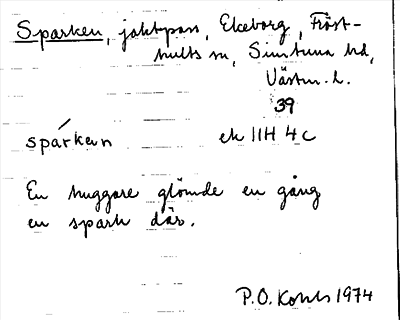 Sparken, jaktpass, Ekeborg, Fröst-
hults sn, Simtuna hd,
Västm. l.
39
spárkən ek 11H 4c
En huggare glömde en gång
en spark där.
P.O. Kohls 1974